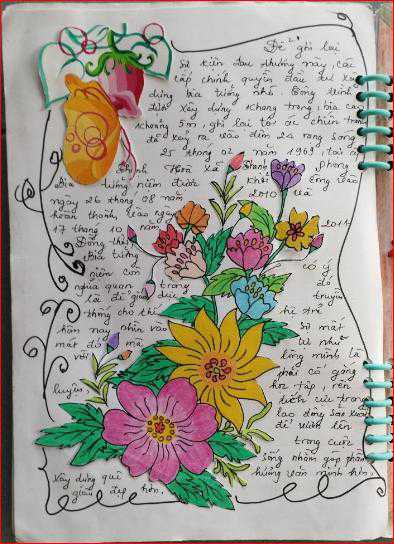 Để ghi lại
sự kiện đau thương này, các
cấp chính quyền đầu tư xây
dựng bia tưởng niệm. Công trình
được xây dựng khang trang, bia cao
khoảng 5m, ghi lại tội ác chiến tranh
đã xảy ra vào đêm 24 rạng sáng
25 tháng 02 năm 1969, tại
Thạnh Phong
Bia tưởng niệm được khởi công vào
ngày 26 tháng 08 năm 2010 và
hoàn thành vào ngày
17 tháng 10 năm 2011
Đồng thời
Bia tưởng
niệm còn có ý
nghĩa quan trọng đó
là để giáo dục truyền
thống cho thế hệ trẻ
hôm nay nhìn vào sự mất
mát đó mà tự nhủ
với lòng mình là
phải cố gắng
học tập, rèn
luyện, tích cực trong
lao động sản xuất
để vươn lên
trong cuộc
sống nhằm góp phần
xây dựng quê hương văn minh hơn,
giàu đẹp hơn.